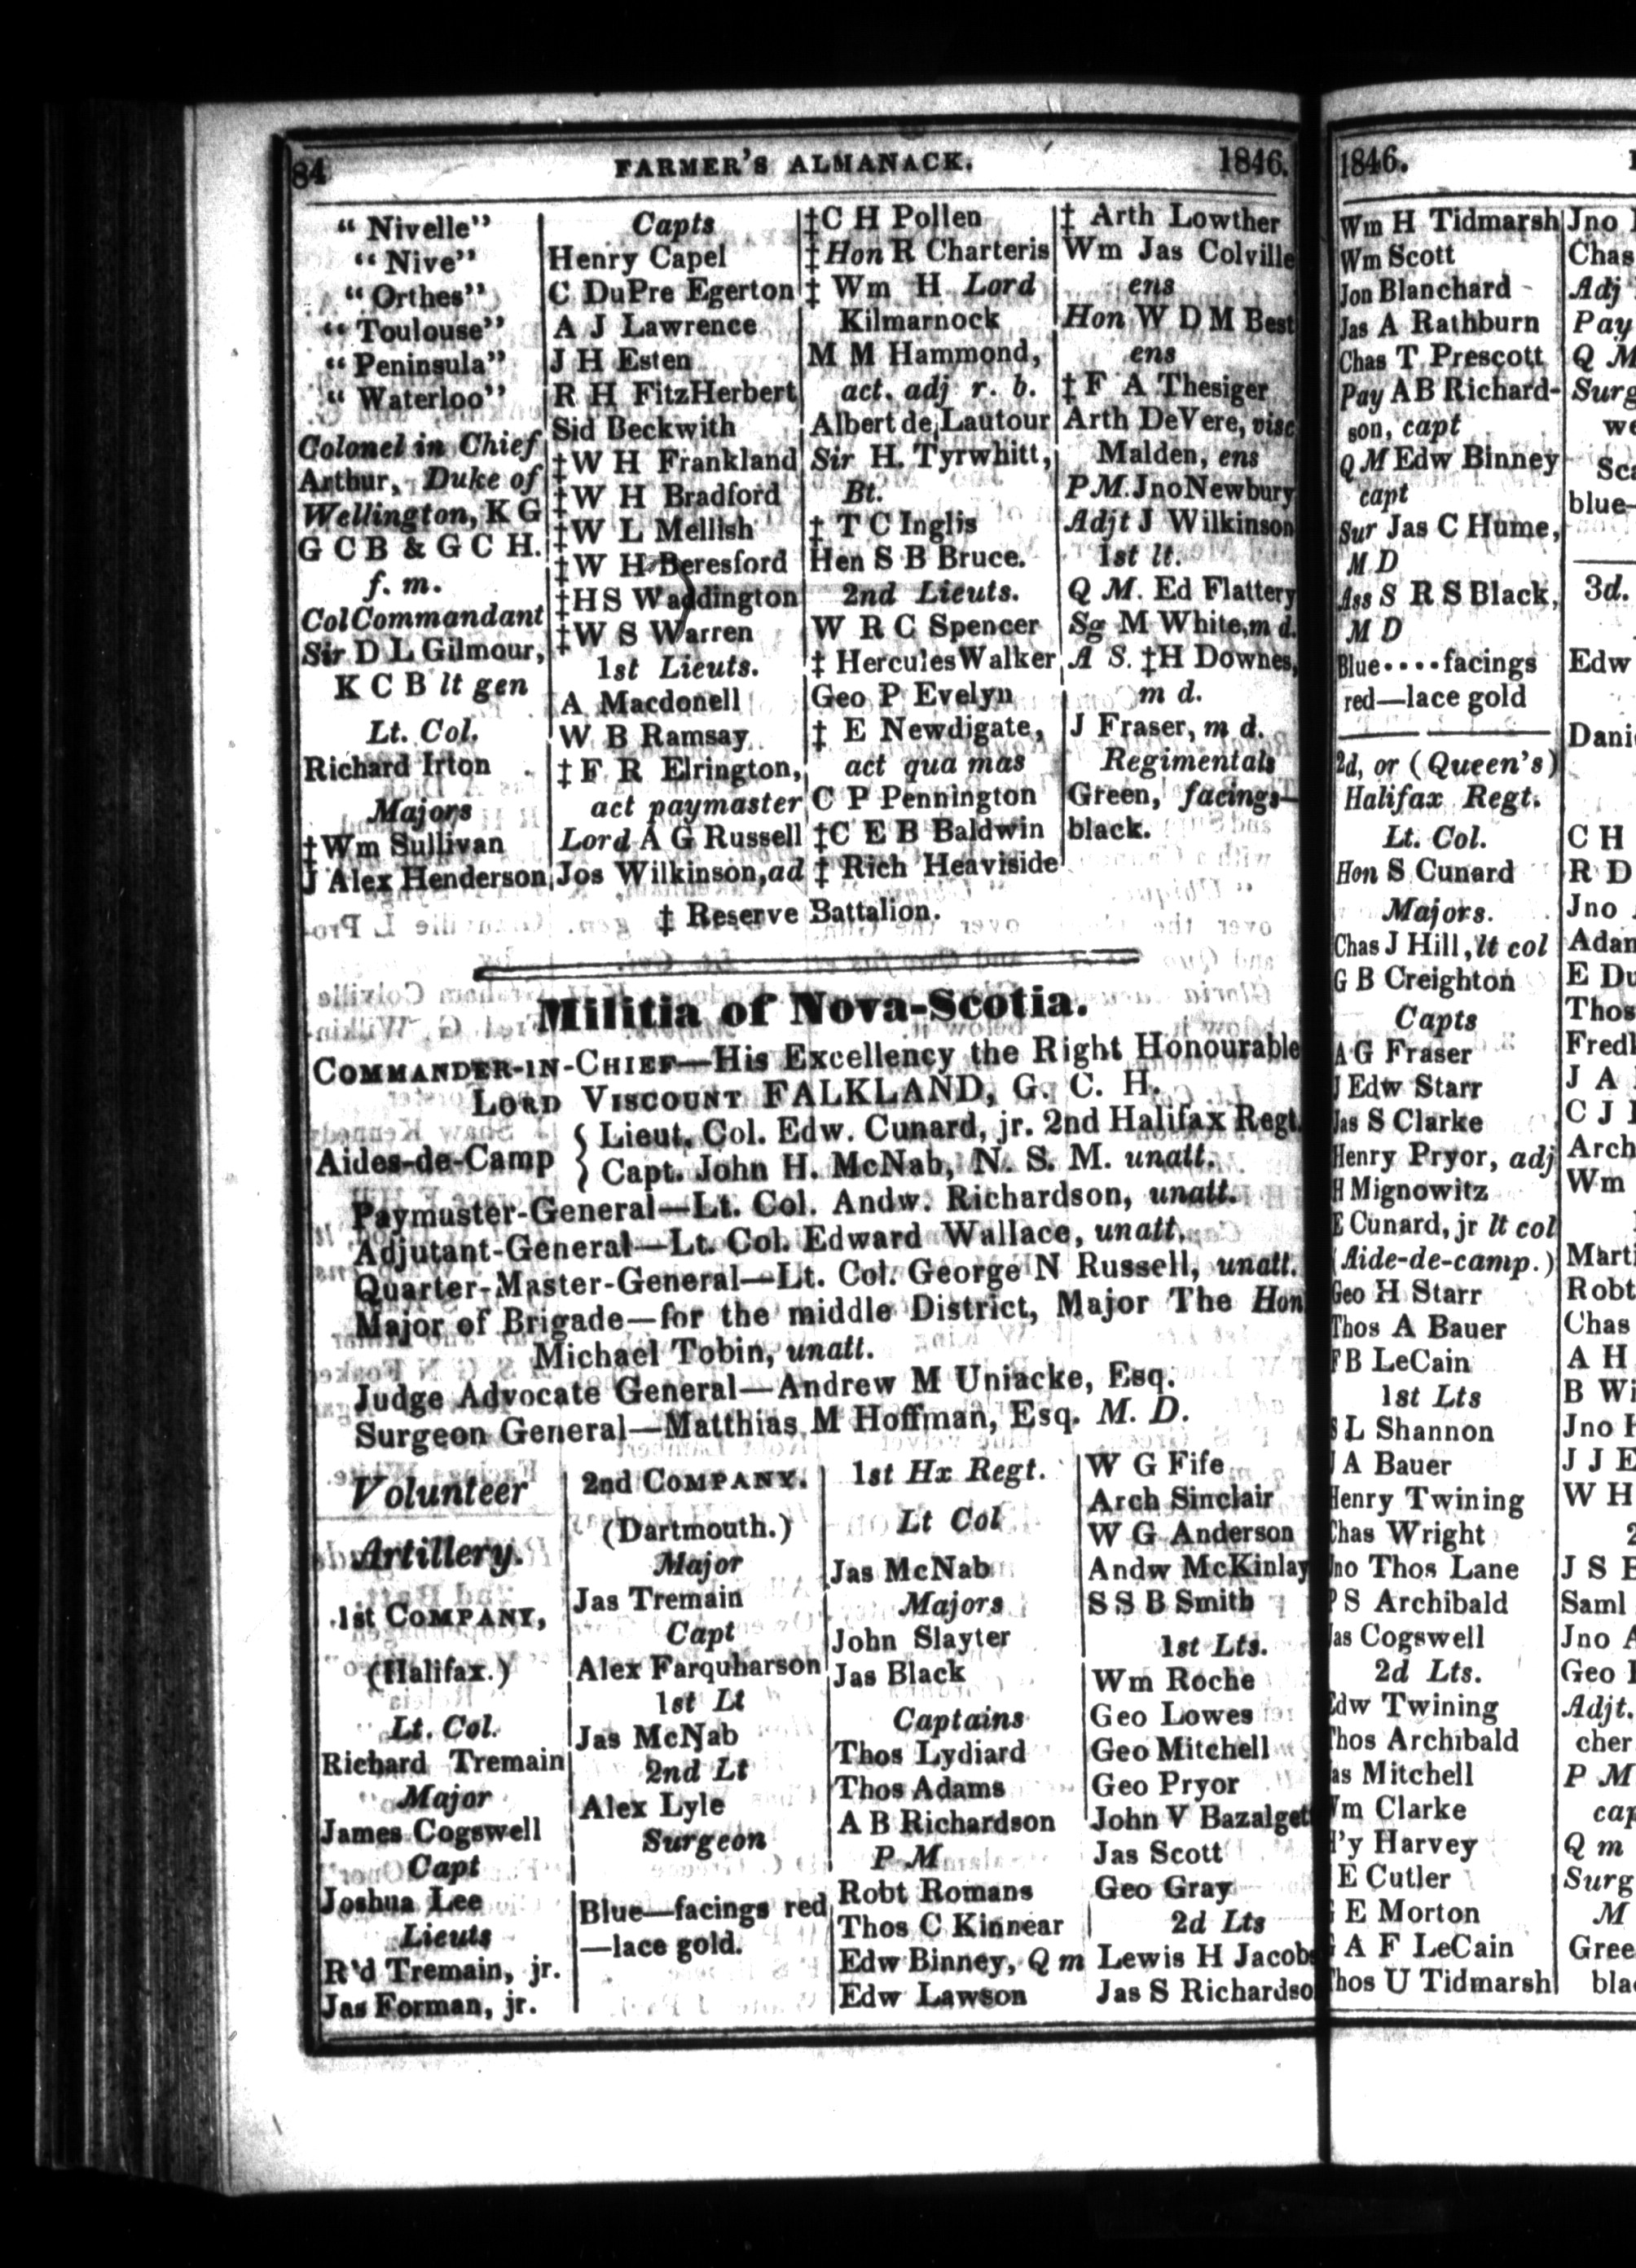 84
FARMER'S ALMANACK.
1846.
"Nivelle"
"Nive"
"Orthes"
"Toulouse"
"Peninsula"
"Waterloo"
Colonel in Chief
Arthur, Duke of
Wellington, K G
G C B & G C H.
f. m.
Col Commandant
Sir D L Gilmour,
K C B lt gen
Lt. Col.
Richard Irton
Majors
‡Wm Sullivan
J Alex Henderson
Capts
Henry Capel
C DuPre Egerton
A J Lawrence
J H Esten
R H FitzHerbert
Sid Beckwith
‡W H Frankland
‡W H Bradford
‡W L Mellish
‡W H Beresford
‡H S Waddington
‡W S Warren
1st Lieuts.
A Macdonell
W B Ramsay
‡F R Elrington,
act paymaster
Lord A G Russell
Jos Wilkinson, ad
‡C H Pollen
‡Hon R Charteris
‡ Wm H Lord
Kilmarnock
M M Hammond,
act. adj r. b.
Albert de Lautour
Sir H. Tyrwhitt,
Bt.
‡ T C Inglis
Hen S B Bruce.
2nd Lieuts.
W R C Spencer
‡ Hercules Walker
Geo P Evelyn
‡ E Newdigate,
act qua mas
C P Pennington
‡C E B Baldwin
‡ Rich Heaviside
‡ Arth Lowther
Wm Jas Colville
ens
Hon W D M Best
ens
‡F A Thesiger
Arth DeVere, visc
Malden, ens
P.M. Jno Newbury
Adjt J Wilkinson
1st lt.
Q M. Ed Flattery
Sg M White, m d.
A S. ‡H Downes,
m d.
J Fraser, m d.
Regimentals
Green, facings—
black.
‡ Reserve Battalion.
Militia of Nova-Scotia.
COMMANDER-IN-CHIEF—His Excellency the Right Honourable
LORD VISCOUNT FALKLAND, G. C. H.
Aides-de-Camp { Lieut. Col. Edw. Cunard, jr. 2nd Halifax Regt.
Capt. John H. McNab, N. S. M. unatt.
Paymaster-General—Lt. Col. Andw. Richardson, unatt.
Adjutant-General—Lt. Col. Edward Wallace, unatt.
Quarter-Master-General—Lt. Col. George N Russell, unatt.
Major of Brigade—for the middle District, Major The Hon
Michael Tobin, unatt.
Judge Advocate General—Andrew M Uniacke, Esq.
Surgeon General—Matthias M Hoffman, Esq. M. D.
Volunteer
Artillery.
1st COMPANY,
(Halifax.)
Lt. Col.
Richard Tremain
Major
James Cogswell
Capt
Joshua Lee
Lieuts
R'd Tremain, jr.
Jas Forman, jr.
2nd COMPANY.
(Dartmouth.)
Major
Jas Tremain
Capt
Alex Farquharson
1st Lt
Jas McNab
2nd Lt
Alex Lyle
Surgeon
Blue—facings red
—lace gold.
1st Hx Regt.
Lt Col
Jas McNab
Majors
John Slayter
Jas Black
Captains
Thos Lydiard
Thos Adams
A B Richardson
P M
Robt Romans
Thos C Kinnear
Edw Binney, Q m
Edw Lawson
W G Fife
Arch Sinclair
W G Anderson
Andw McKinlay
S S B Smith
1st Lts.
Wm Roche
Geo Lowes
Geo Mitchell
Geo Pryor
John V Bazalget
Jas Scott
Geo Gray
2d Lts
Lewis H Jacobs
Jas S Richardso
1846.
Wm H Tidmarsh
Wm Scott
Jon Blanchard
Jas A Rathburn
Chas T Prescott
Pay A B Richard-
son, capt
Q M Edw Binney
capt
Sur Jas C Hume,
M D
Ass S R S Black,
M D
Blue....facings
red—lace gold
2d, or (Queen's)
Halifax Regt.
Lt. Col.
Hon S Cunard
Majors.
Chas J Hill, lt col
G B Creighton
Capts
A G Fraser
J Edw Starr
Jas S Clarke
Henry Pryor, adj
H Mignowitz
E Cunard, jr lt col
(Aide-de-camp.)
Geo H Starr
Thos A Bauer
F B LeCain
1st Lts
S L Shannon
J A Bauer
Henry Twining
Chas Wright
Jno Thos Lane
P S Archibald
Jas Cogswell
2d Lts.
Edw Twining
Thos Archibald
as Mitchell
Wm Clarke
H'y Harvey
E Cutler
E Morton
A F LeCain
Thos U Tidmarsh
Jno
Chas
Adj
Pay
Q M
Surg
we
Sca
blue—
3d.
Edw
Dani
C H
R D
Jno
Adam
E Du
Thos
Fredk
J A
C J
Arch
Wm
Marti
Robt
Chas
A H
B Wi
Jno H
J J E
W H
2
J S B
Saml
Jno A
Geo
Adjt.
cher
P M
cap
Q m
Surg
M
Gree
bla